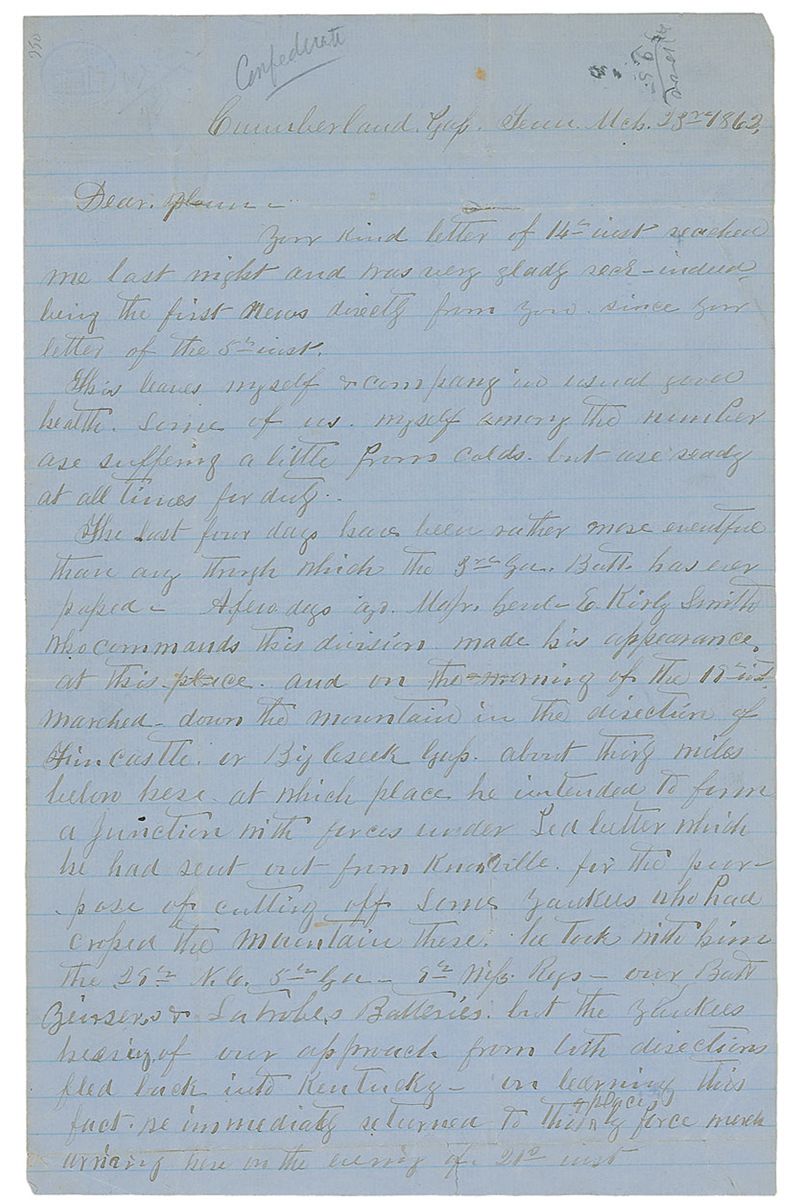 250
Confederate
Cumberland Gap. Tenn. Mch. 23rd 1862.
Dear
Your kind letter of 14th inst reached
me last night and was very gladly recd - indeed,
being the first news directly from you. since your
letter of the 5th inst.
This leaves myself & company in usual good
health. Some of us. myself among the number
are suffering a little from colds. but are ready
at all times for duty.
The last four days have been rather more eventful
than any through which the 3rd Ga. Batt. has ever
passed - A few days ago. Majr. Genl - E. Kirby Smith
who commands this division made his appearance,
at this place. and on the morning of the 19th inst
marched - down the mountain in the direction of
Fincastle. or Big Creek Gap. about thirty miles
below here. at which place he intended to form
a Junction with forces under Ledbetter which
he had sent out from Knoxville. for the pur-
pose of cutting off some Yankees who had
crossed the mountain there. he took with him
the 29th N.C. 5th Ga - 9th Miss. Regs - our Batt
& Latrobe,s Batteries. but the Yankees
hearing of our approach from both directions
fled back into Kentucky - on learning this
fact. he immediately returned to this place by force march
arriving here on the evening of 21st inst